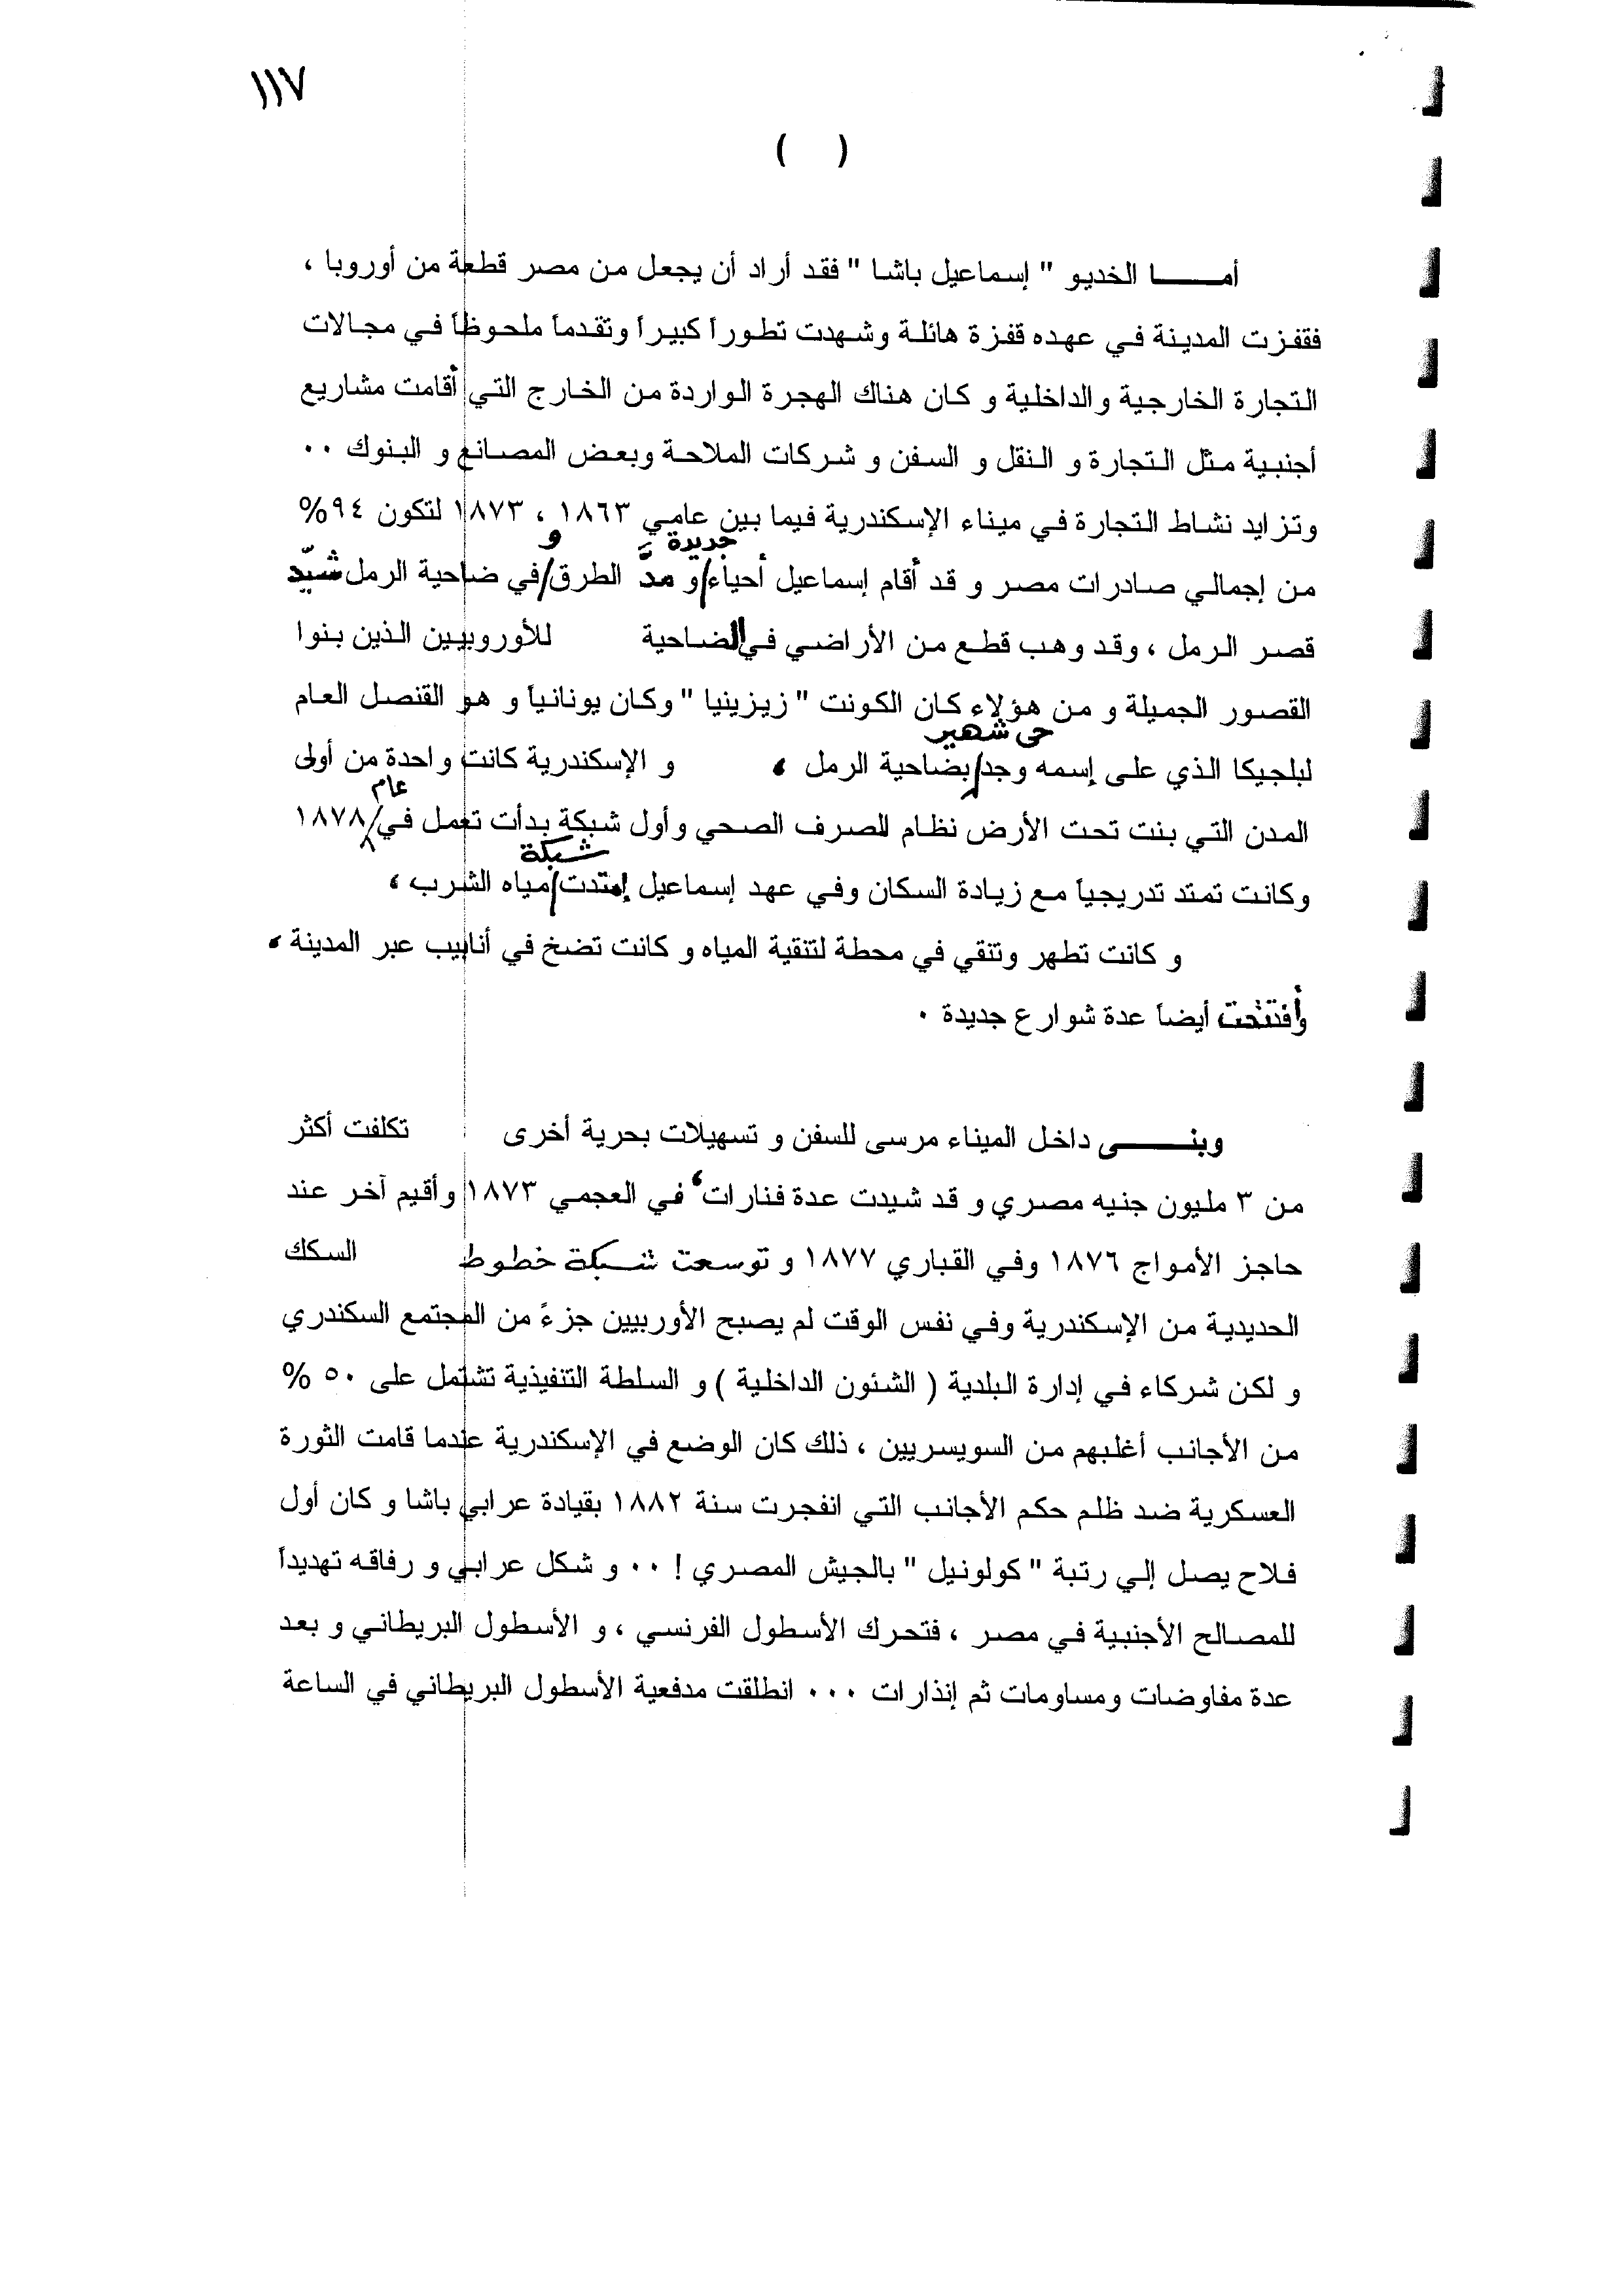 ١١٧
( )
أمـــــا الخديو " إسماعيل باشا " فقد أراد أن يجعل من مصر قطعة من أوروبا ،
فقفزت المدينة في عهده قفزة هائلة وشهدت تطوراً كبيراً وتقدماً ملحوظاً في مجالات
التجارة الخارجية والداخلية و كان هناك الهجرة الواردة من الخارج التي أقامت مشاريع
أجنبية مثل التجارة و النقل و السفن و شركات الملاحة وبعض المصانع و البنوك ٠٠
وتزايد نشاط التجارة في ميناء الإسكندرية فيما بين عامي ١٨٦٣ ، ١٨٧٣ لتكون ٩٤%
من إجمالي صادرات مصر و قد أقام إسماعيل أحياء جديدة و مدَّ الطرق و في ضاحية الرمل شيّد
قصر الرمل ، وقد وهب قطع من الأراضي في الضاحية للأوروبيين الذين بنوا
القصور الجميلة و من هؤلاء كان الكونت " زيزينيا " وكان يونانياً و هو القنصل العام
لبلجيكا الذي على إسمه وجد حى شهير بضاحية الرمل ، و الإسكندرية كانت واحدة من أولى
المدن التي بنت تحت الأرض نظام للصرف الصحي وأول شبكة بدأت تعمل في عام ١٨٧٨
وكانت تمتد تدريجياً مع زيادة السكان وفي عهد إسماعيل إمتدت شبكة مياه الشرب ،
و كانت تطهر وتنقي في محطة لتنقية المياه و كانت تضخ في أنابيب عبر المدينة ،
وأفتتحت أيضاً عدة شوارع جديدة ٠
وبنـــــى داخل الميناء مرسى للسفن و تسهيلات بحرية أخرى تكلفت أكثر
من ٣ مليون جنيه مصري و قد شيدت عدة فنارات ، في العجمي ١٨٧٣ وأقيم آخر عند
حاجز الأمواج ١٨٧٦ وفي القباري ١٨٧٧ و توسعت شبكة خطوط السكك
الحديدية من الإسكندرية وفي نفس الوقت لم يصبح الأوربيين جزءً من المجتمع السكندري
و لكن شركاء في إدارة البلدية ( الشئون الداخلية ) و السلطة التنفيذية تشتمل على ٥٠ %
من الأجانب أغلبهم من السويسريين ، ذلك كان الوضع في الإسكندرية عندما قامت الثورة
العسكرية ضد ظلم حكم الأجانب التي انفجرت سنة ١٨٨٢ بقيادة عرابي باشا و كان أول
فلاح يصل إلي رتبة " كولونيل " بالجيش المصري ! ٠٠ و شكل عرابي و رفاقه تهديداً
للمصالح الأجنبية في مصر ، فتحرك الأسطول الفرنسي ، و الأسطول البريطاني و بعد
عدة مفاوضات ومساومات ثم إنذارات ٠٠٠ انطلقت مدفعية الأسطول البريطاني في الساعة